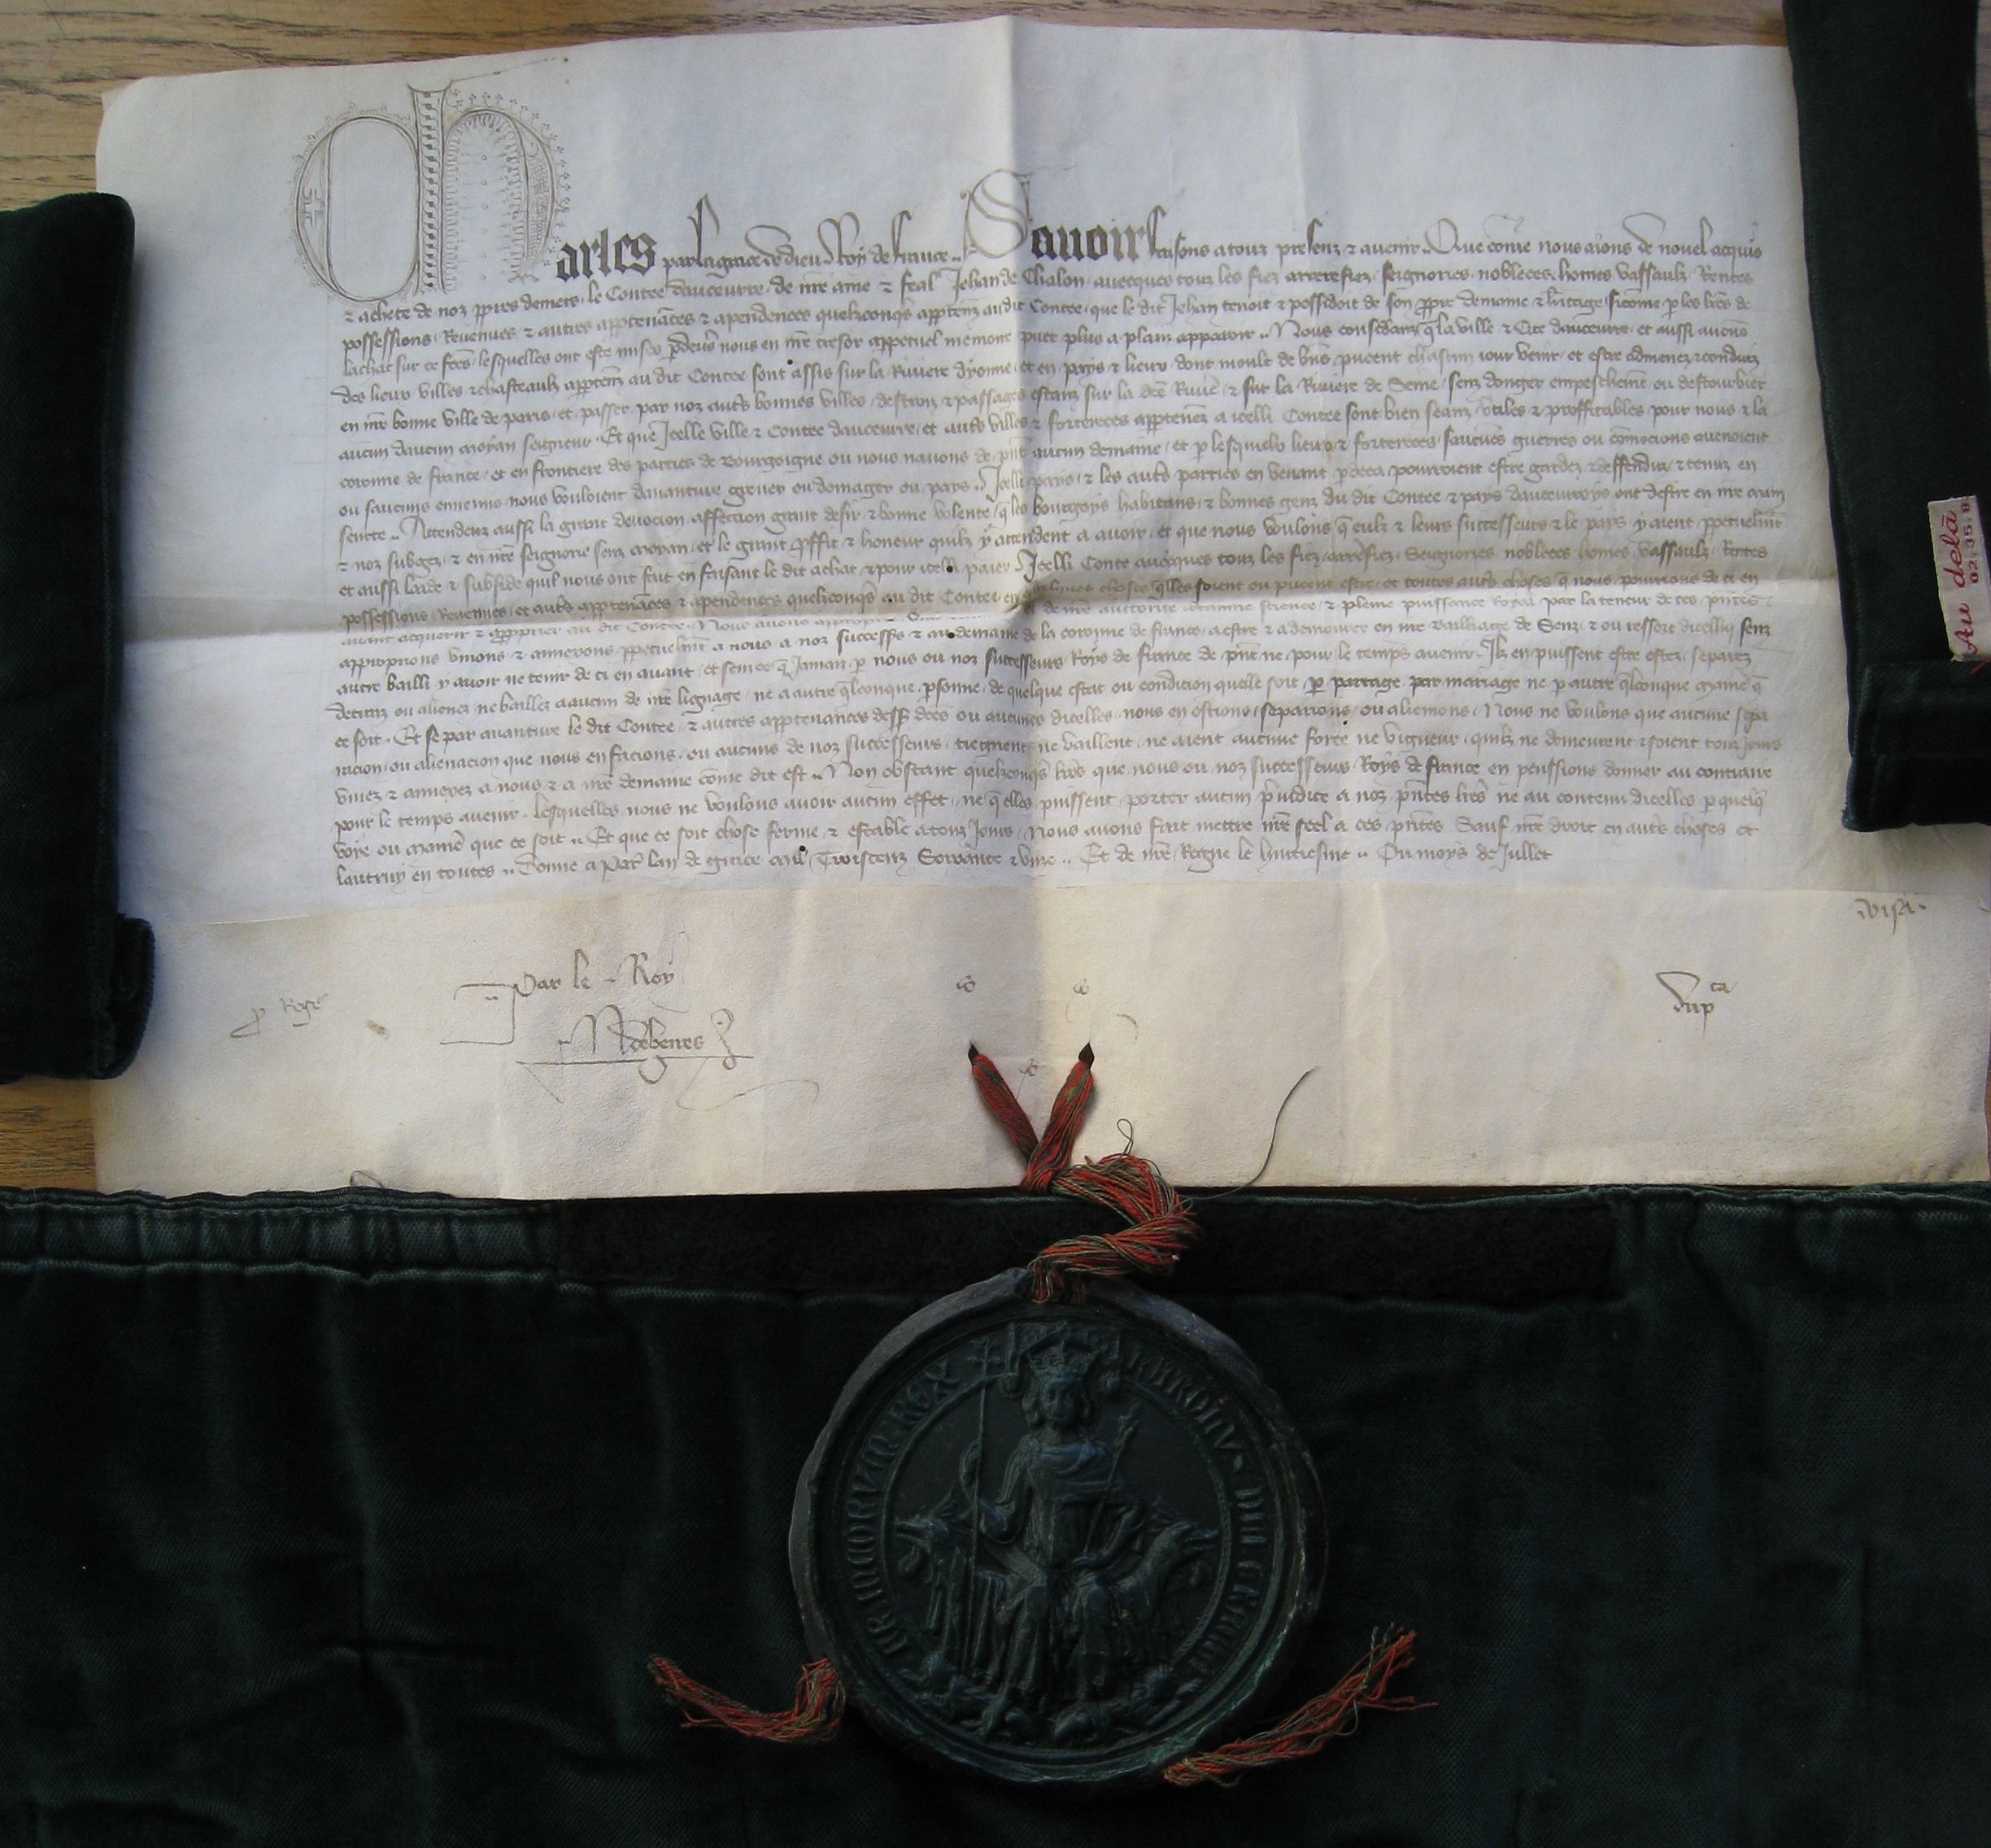 Charles par la grace de dieu Roy de france .. Savoir faisons a touz presenz & avenir .. Que come nous aions de nouvel acquis
& achete de noz ppres deniers, le Conte dauceurre, de nre ame & feal Jehan de Chalon, avecques touz les fiez arrerefiez, seignories, nobleces, homes vassaulx, Rentes
possessions, Revenues & autres apptenaces & apendences quelxconqs apptenz au dit Conte, que le dit Jehan tenoit & possidoit de son ppre demaine & heritage, sicome p les lres de
lachat sur ce fces, lesquelles ont este mises pdevs nous en nre tresor a ppetuel memoire puet plus a plain apparoir .. Nous considanz q la ville & Cite daucerre, et aussi aucuns
des lieux villes & chasteaulx apptenz au dit Conte sont assis sur la Riviere dyonne, et en pays & lieux dont moult de bns pueent chascun iour venir, et estre admenez & conduiz
en nre bonne ville de paris, et passer par noz auts bonnes villes, destroiz & passages estanz sur la dce Rivie, & sur la Riviere de Seine, senz dongier empeschemt ou destourbier
aucun daucun moyan seigneur. Et que Icelle ville & Conte dauceurre, et auts villes & forteresces apptenez a icelli Conte sont bien seanz, utiles & proffitables pour nous & la
coronne de france, et en frontiere des parties de Bourgoigne ou nous navons de pnt aucun demaine, et p lesquelx lieux & forteresces, saucues guerres ou comocions avenoient
ou saucuns ennemis nous vouloient davanture grever ou domager ou pays .. Icelli pays, & les auts parties en venant pdeca, pourroient estre gardez & deffenduz, & tenuz en
seurte .. Attendenz aussi la grant devocion affeccion grant desir & bonne volente, q les bourgoys habitans, & bonnes genz du dit Conte & pays daucerroys ont destre en nre main
& noz subgez, & en nre seignorie senz moyan, et le grant pffit & honeur quilz y attendent a avoir, et que nous voulons q eulz & leurs successeurs & le pays y aient ppetuelmt
et aussi laide & subside quil nous ont fait en faisant le dit achat, & pour icelli paier, Icelli Conte avecques touz les fiez, arrefiez, Seignories nobleces homes, vassaulx, Rentes
possessions, Revenues, et auts apptenaces & apendences quelxconqs au dit Conte, en quelxques choses qlles soient ou pueent estre, et toutes auts choses q nous pourrions de ci en
avant acquerir & appprier au dit Conte, Nous avons approprie de nre auctorite certaine science, & pleine puissance Royal par la teneur de ces pntes
approprions unions & annexons ppetuelmt a nous a noz successrs & au demaine de la coronne de france, a estre & a demourer en nre Bailliage de Senz, & ou ressort dicelluy senz
autre bailli y avoir ne tenir de ci en avant, et senz ce q Jamais p nous ou noz successeurs Roys de france de pnt ne pour le temps avenir, Ilz en puissent estre ostez, separez
desunz ou alienez, ne baillez a aucun de nre lignage, ne a autre qlconque psonne, de quelque estat ou condicion quelle soit, p partage, par mariage ne p autre qlconque manie q
ce soit. Et se par avanture le dit Conte, & autres apptenances dessus dces ou aucunes dicelles, nous en ostions, separions, ou alienions, Nous ne voulons que aucune sepa
racion, ou alienacion que nous en facions, ou aucuns de noz successeurs, tiegnent, ne vaillent, ne aient aucune force ne vigueur, quilz ne demeurent & soient touz jours
uniez & annexez a nous & a nre demaine come dit est .. Non obstant quelxconqs lres que nous ou noz successeurs Roys de france en peussions donner au contraire
pour le temps avenir. lesquelles nous ne voulons avoir aucun effet, ne q elles puissent porter aucun piudice a noz pntes lres ne au contenu dicelles p quelq
voye ou manie que ce soit .. Et que ce soit chose ferme & estable a touz Jours, Nous avons fait mettre nre seel a ces pntes Sauf nre droit en auts choses et
lautruy en toutes .. Donne a Par lan de grace Mil Troiscenz Soixante & unze .. Et de nre Regne le huitiesme .. Ou moys de Jullet
visa.
p Rege
Par le Roy
dupta
N de beires
KAROLUS DEI GRACIA FRANCORUM REX
Au delà
02.35.8